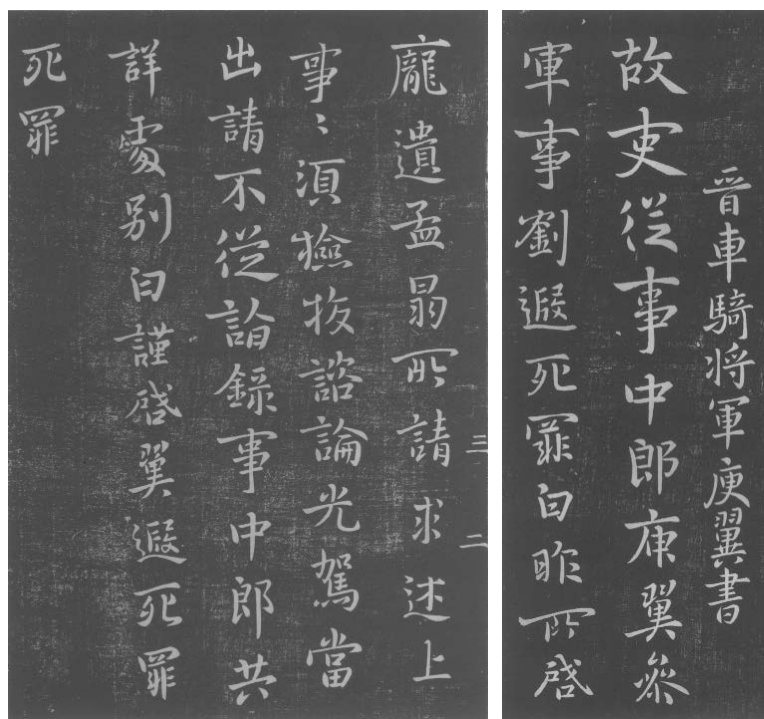 晋車騎将軍庾翼書
故吏従事中郎庾翼叅
軍事劉遐死罪白昨所啓
龐遺孟昜所請求述上
三
二
事〻須檢校諮論光駕當
出請不従詣録事中郎共
詳處別白謹啓翼遐死罪
死罪